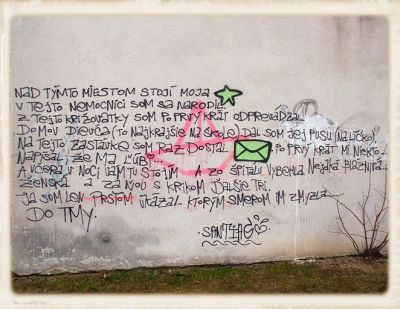 NAD TÝMTO MIESTOM STOJÍ MOJA
V TEJTO NEMOCNICI SOM SA NARODIL.
Z TEJTO KRIŽOVATKY SOM PO PRVÝ KRÁT ODPREVÁDZAL
DOMOV DIEVČA (TO NAJKRAJŠIE NA ŠKOLE). DAL SOM JEJ PUSU (NA LÍČKO).
NA TEJTO ZASTÁVKE SOM RAZ DOSTAL A PO PRVÝ KRÁT MI NIEKTO
NAPÍSAL, ŽE MA ĽÚBI.
A VČERA V NOCI VÁM TU STOJÍM A ZO ŠPITÁLU VYBEHLA NEJAKÁ BLÁZNIVÁ
ŽENSKÁ A ZA ŇOU S KRIKOM ĎALŠIE TRI.
JA SOM LEN PRSTOM UKÁZAL KTORÝM SMEROM IM ZMYZLA.
DO TMY.